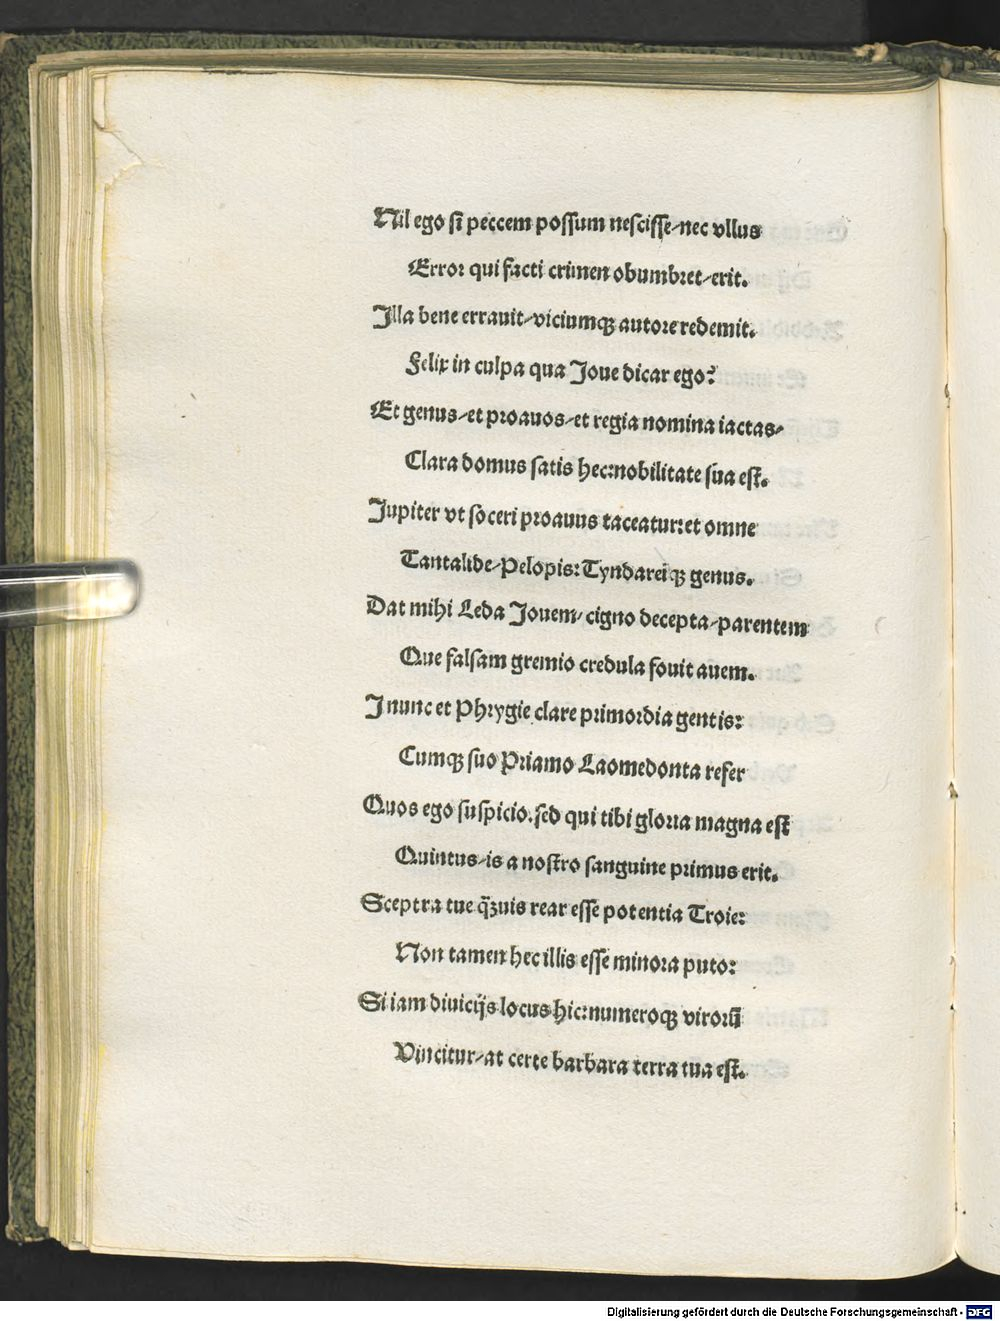 Nil ego si peccem possum nescisse/nec vllus
Error qui facti crimen obumbret/erit.
Illa bene errauit/viciumqꝫ autore redemit.
Felix in culpa qua Joue dicar ego?
Et genus/et proauos/et regia nomina iactas/
Clara domus satis hec:nobilitate sua est.
Jupiter vt soceri proauus taceatur:et omne
Tantalide/Pelopis:Tyndareiqꝫ genus.
Dat mihi Leda Jouem/cigno decepta/parentem
Que falsam gremio credula fouit auem.
I nunc et Phrygie clare primordia gentis:
Cumqꝫ suo Priamo Laomedonta refer
Quos ego suspicio.sed qui tibi gloria magna est
Quintus/is a nostro sanguine primus erit.
Sceptra tue q̄ꝫuis rear esse potentia Troie:
Non tamen hec illis esse minora puto:
Si iam diuicijs locus hic:numeroqꝫ virorū
Vincitur/at certe barbara terra tua est.
Digitalisierung gefördert durch die Deutsche Forschungsgemeinschaft - DFG